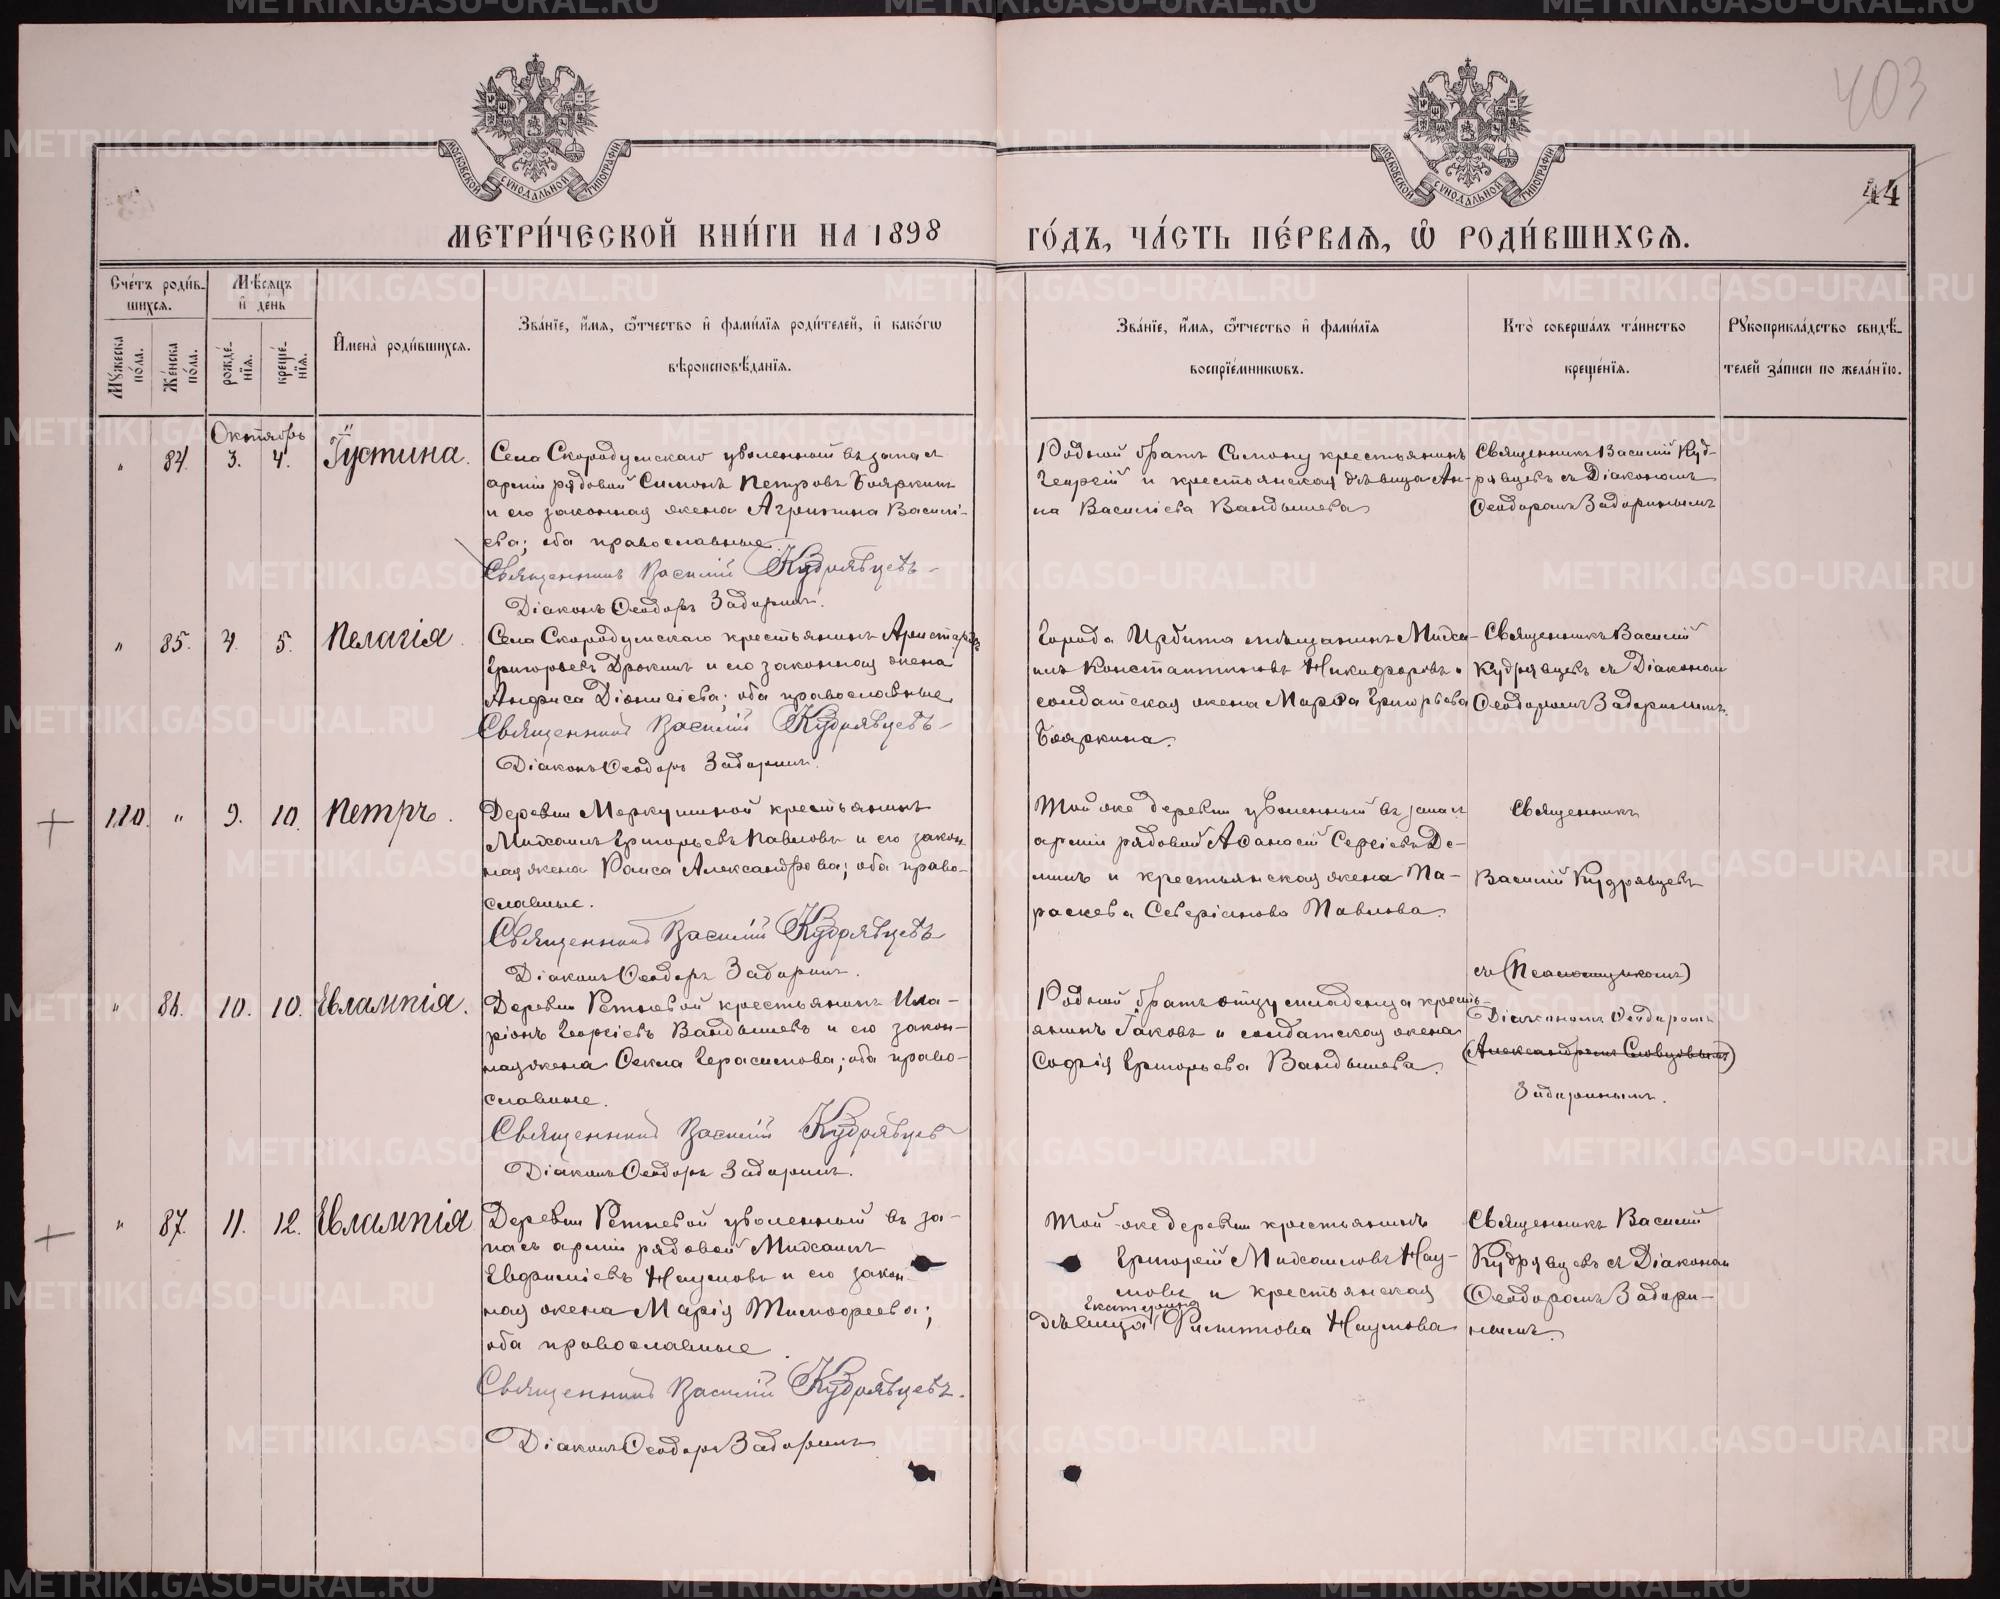 403
44
МОСКОВСКОЙ СѴНОДАЛЬНОЙ ТИПОГРАФІИ
МОСКОВСКОЙ СѴНОДАЛЬНОЙ ТИПОГРАФІИ
МЕТРИ́ЧЕСКОЙ КНИ́ГИ НА 1898 ГО́ДЪ, ЧА́СТЬ ПЕ́РВАЯ, Ѡ РОДИ́ВШИХСЯ.
Сче́тъ роди́в-
шихся.
Мꙋ́жеска по́ла.
Же́нска по́ла.
Мѣ́сяцъ и҆ де́нь
рожде́-нїя.
креще́-нїя.
И҆мена̀ роди́вшихся.
Зва́нїе, и҆́мя, ѻ҆́тчество и҆ фами́лїя роди́телей, и҆ како́гѡ
вѣроисповѣ́данїя.
Зва́нїе, и҆́мя, ѻ҆́тчество и҆ фами́лїя
воспрїе́мникѡвъ.
Кто̀ соверша́лъ та́инство
креще́нїя.
Рꙋкоприкла́дство свидѣ́-
телей за́писи по жела́нїю.
Октябрь
" 84. 3. 4. Іустина.
Села Скородумскаго уволенный въ запас
арміи рядовой Симонъ Петровъ Бояркинъ
и его законная жена Агрипина Василі-
ева; оба православные.
Священникъ Василій Кудрявцевъ
Діаконъ Ѳеодоръ Задоринъ.
Родной братъ Симону крестьянинъ
Георгій и крестьянская дѣвица Ан-
на Василіева Вандышева
Священникъ Василій Куд-
рявцевъ съ Діакономъ
Ѳеодоромъ Задоринымъ
" 85. 4. 5. Пелагія.
Села Скородумскаго крестьянинъ Аристархъ
Григорьевъ и его законная жена
Анфиса Діонисіева; оба православные
Священникъ Василій Кудрявцевъ
Діаконъ Ѳеодоръ Задоринъ.
Города Ирбита мѣщанинъ Миха-
илъ Константиновъ Никифоровъ и
солдатская жена Марѳа Григорьева
Бояркина.
Священникъ Василій
Кудрявцевъ съ Діакономъ
Ѳеодоромъ Задоринымъ.
110. " 9. 10. Петръ.
Деревни Меркушиной крестьянинъ
Михаилъ Григорьевъ Павловъ и его закон-
ная жена Раиса Александрова; оба право-
славные.
Священникъ Василій Кудрявцевъ
Діаконъ Ѳеодоръ Задоринъ.
Той же деревни уволенный въ запас
арміи рядовой Аѳанасій Сергіевъ Де-
минъ и крестьянская жена Па-
раскева Северіанова Павлова.
Священникъ
Василій Кудрявцевъ
съ (Псаломщикомъ)
" 86. 10. 10. Евлампія.
Деревни Ретневой крестьянинъ Ила-
ріонъ Георгіевъ Вандышевъ и его закон-
ная жена Ѳекла Герасимова; оба право-
славные.
Священникъ Василій Кудрявцевъ
Діаконъ Ѳеодоръ Задоринъ.
Родной братъ отцу младенца кресть-
янинъ Іаковъ и солдатская жена
Софія Григорьева Вандышева.
Діакономъ Ѳеодоромъ
(Александромъ Словцовымъ)
Задоринымъ.
" 87. 11. 12. Евлампія
Деревни Ретневой уволенный въ за-
пасъ арміи рядовой Михаилъ
Евфиміевъ Наумовъ и его закон-
ная жена Марія Тимофеева;
оба православные.
Священникъ Василій Кудрявцевъ.
Діаконъ Ѳеодоръ Задоринъ
Той же деревни крестьянинъ
Григорій Михаиловъ Нау-
мовъ и крестьянская
Екатерина
дѣвица Филиппова Наумова
Священникъ Василій
Кудрявцевъ съ Діакономъ
Ѳеодоромъ Задори-
нымъ.
METRIKI.GASO-URAL.RU